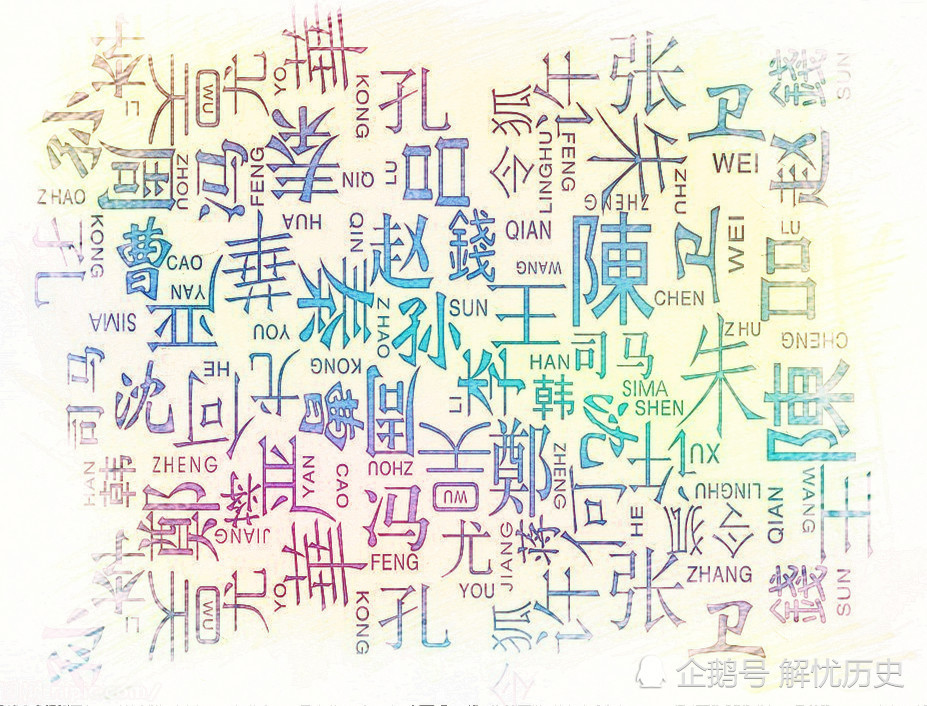 李
LI
孙
吴
WU
尤
YO
華
KONG
孔
狐
令
LINGHU
许
FENG
张
卫
WEI
錢
SUN
ZHAO
周
ZHOU
冯
FENG
秦
QIN
LU
吕
朱
ZHENG
ZHU
赵
KONG
孔
曹
CAO
華
HUA
QIN
赵
錢
QIAN
WANG
陳
CHEN
卫
WEI
LU
吕
SIMA
YAN
严
YOU
秦
ZHAO
孙
SUN
王
ZHU
朱
CHENG
陳
司马
沈
何
HE
尤
KONG
曹
周
李
LI
HAN
韩
司马
SIMA
SHEN
沈
许
UX
HAN
韩
ZHENG
鄭
蒋
JIANG
严
YAN
CAO
ZHOU
吴
WU
鄭
ZHENG
何
HE
LINGHU
令狐
QIAN
WANG
王
冯
FENG
尤
YOU
JIANG
蒋
ZHANG
李
LI
孙
吴
WU
尤
YO
華
KONG
孔
狐
令
许
张
卫
錢
SUN
企鹅号 解忧历史